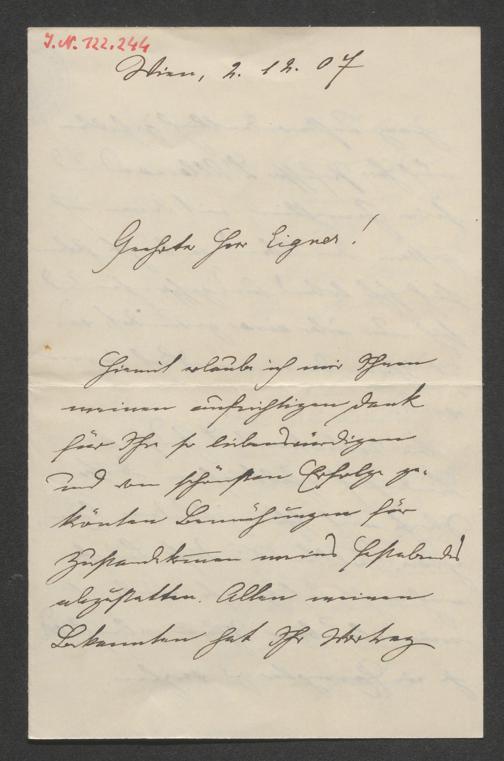 J.N. 122.244
Wien, 2. 12. 07
Geehrter Herr Eigner!
Hiemit erlaube ich mir Ihnen
meinen aufrichtigen Dank
für Ihre so liebenswürdigen
und vom schönsten Erfolge ge-
krönten Bemühungen für
Zustandekommen meines Festabends
abzustatten. Allen meinen
Bekannten hat Ihr Vortrag